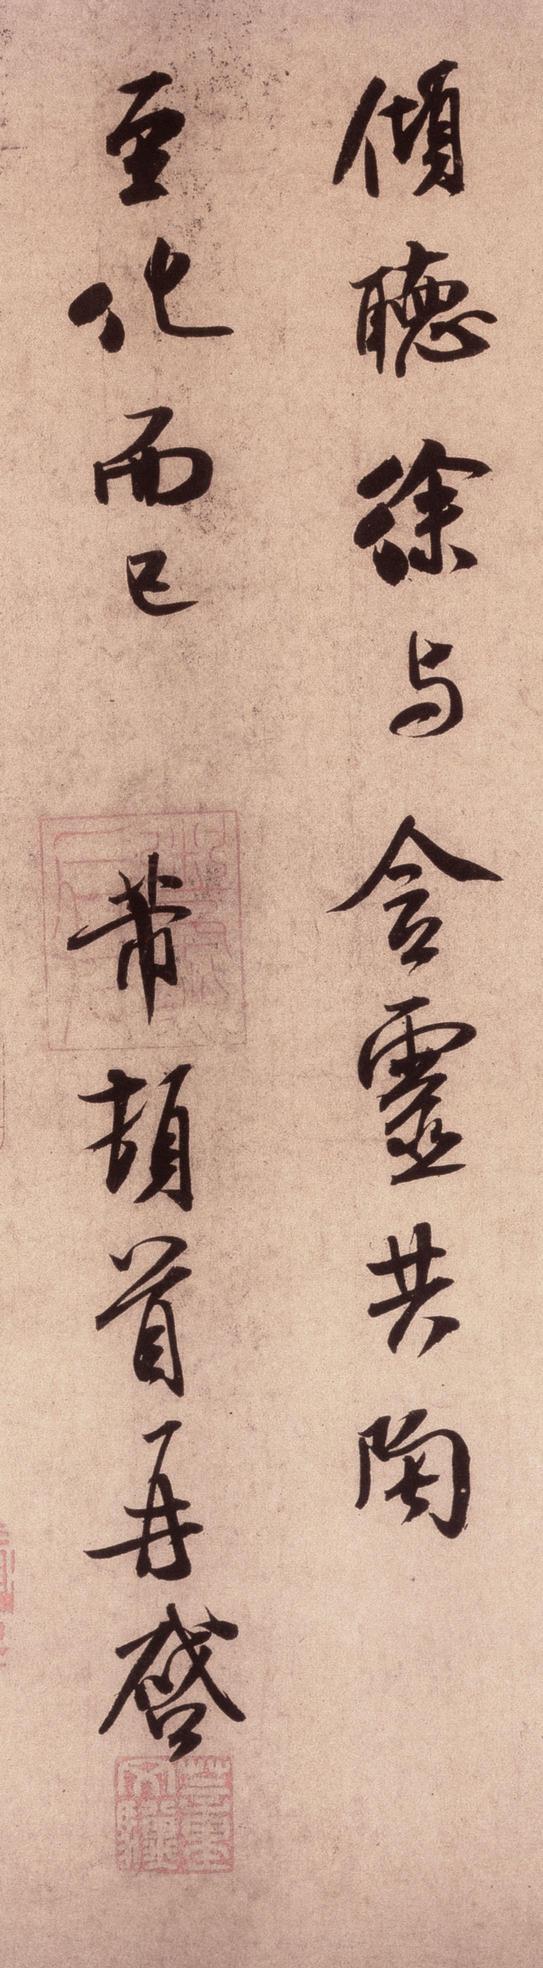 傾聽徐与含靈共陶
至化而已　芾頓首再啓